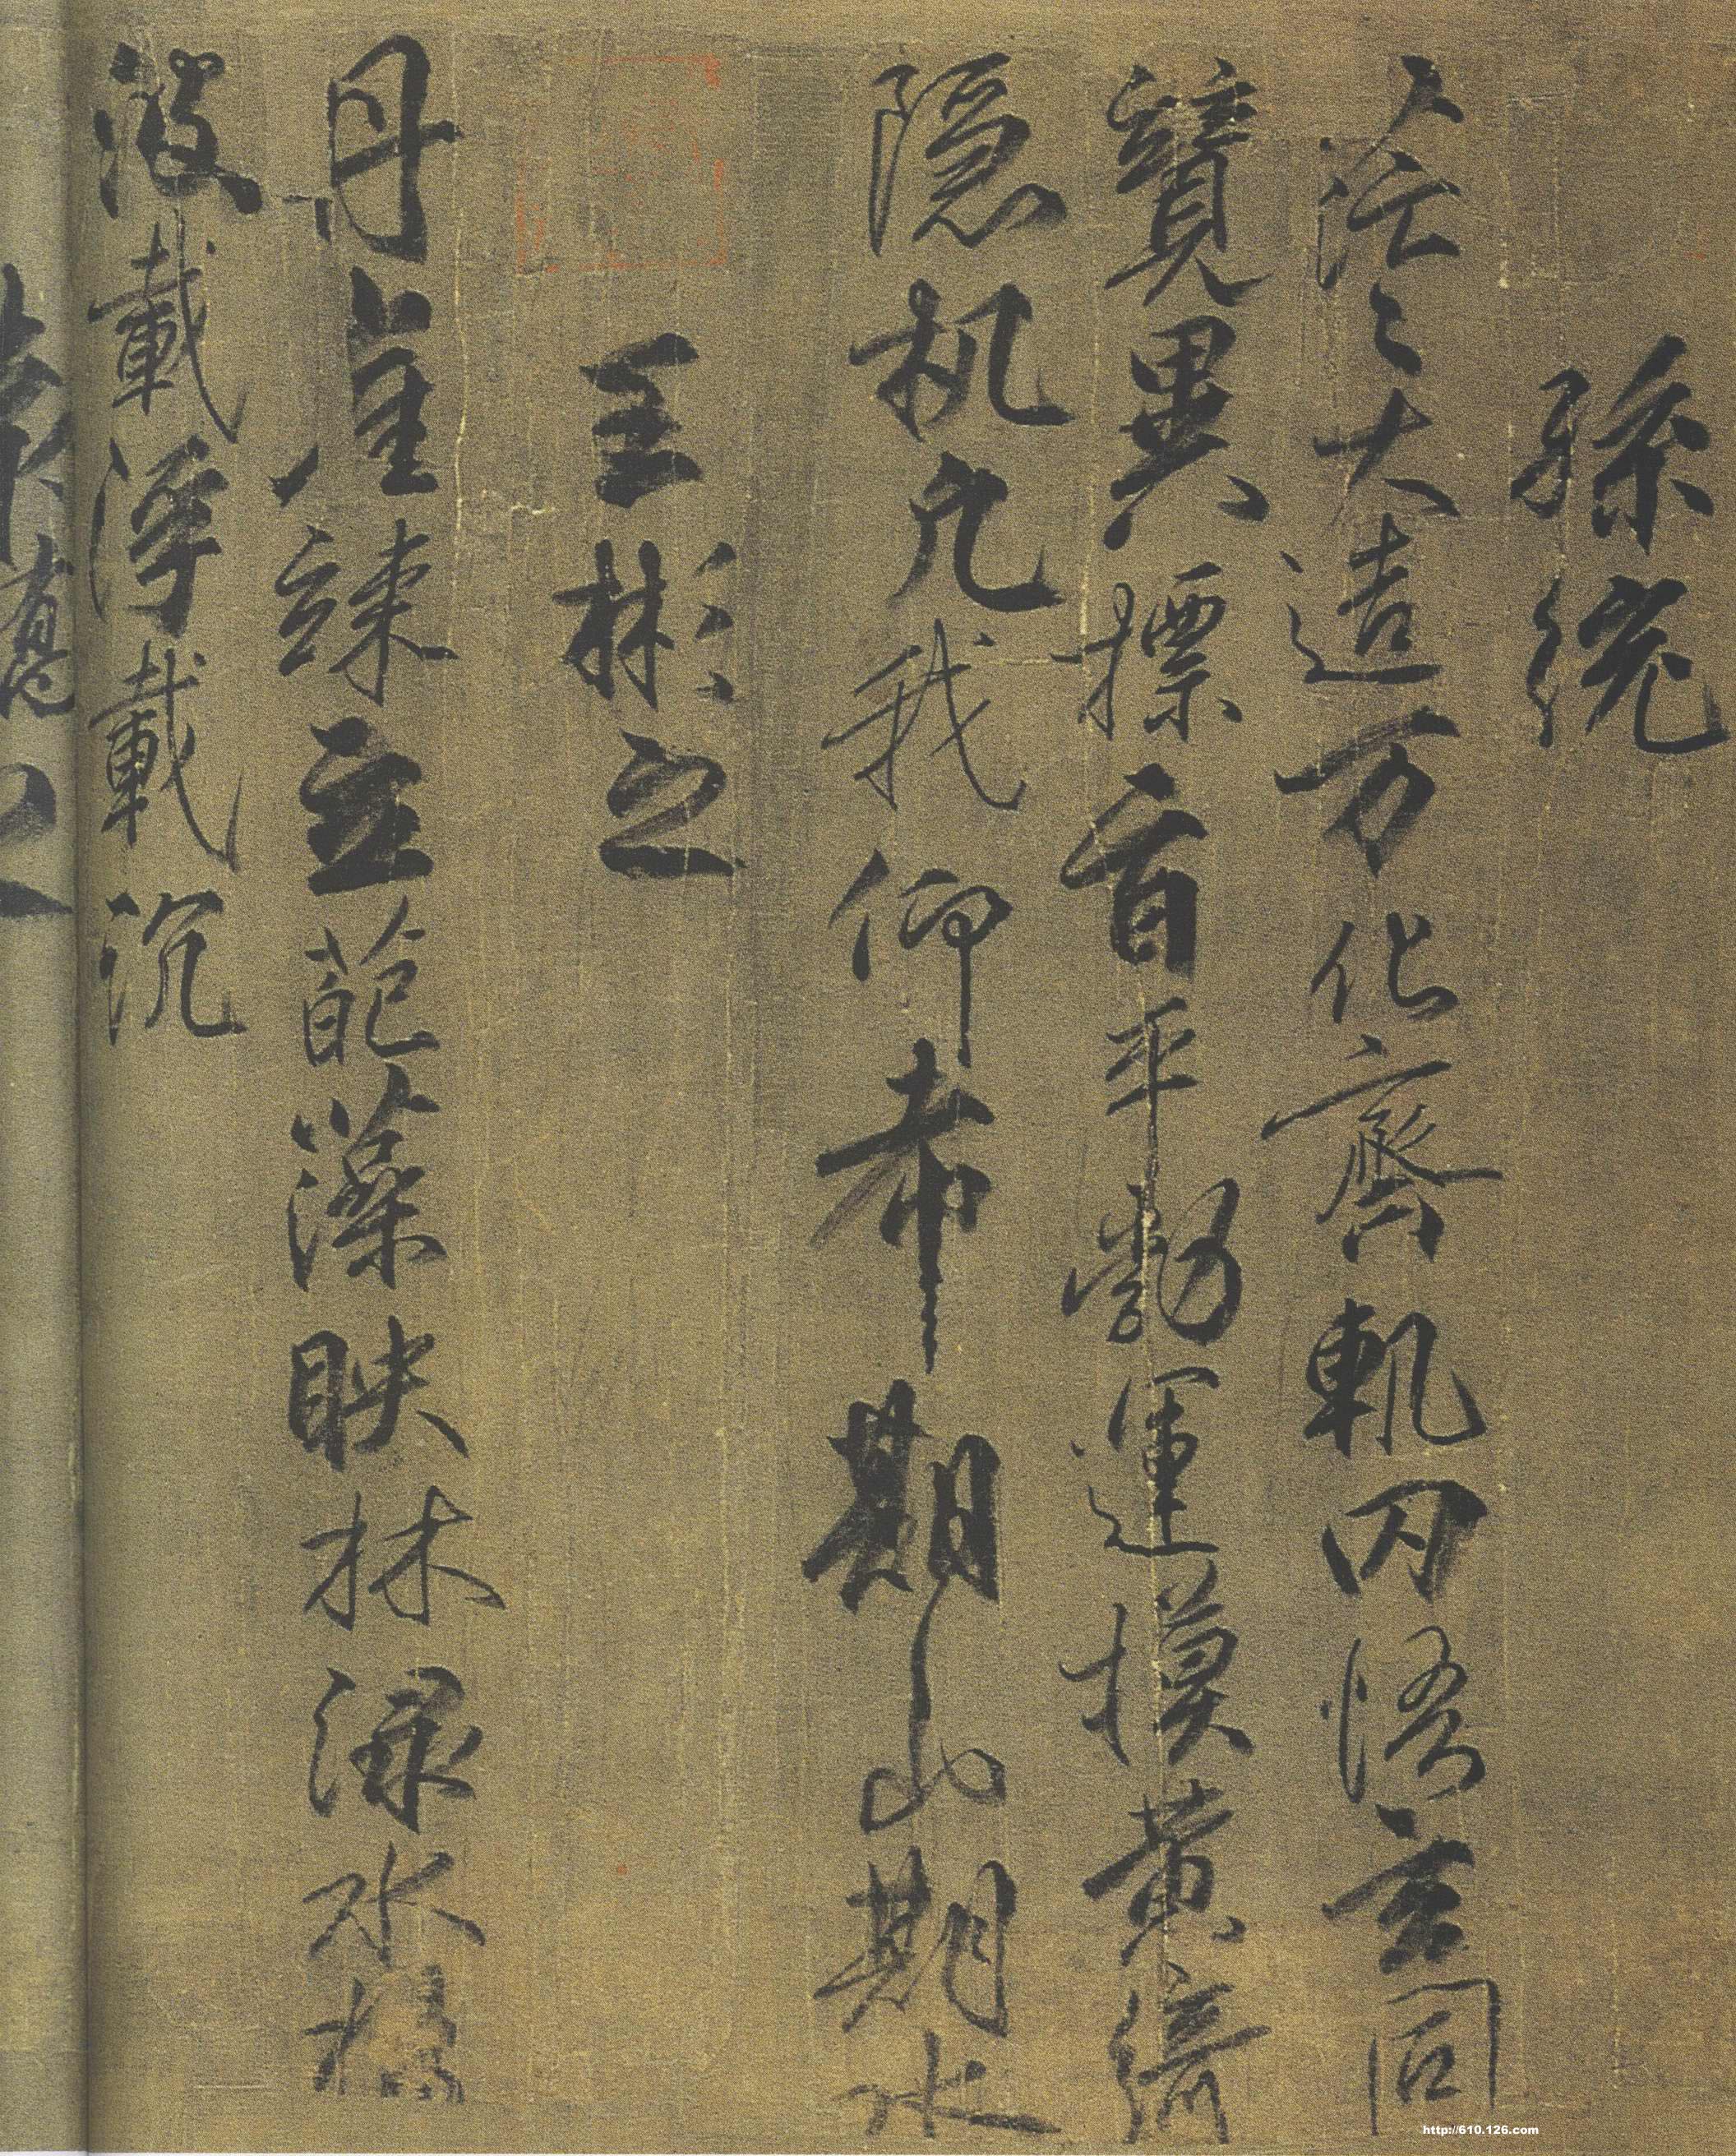 孫統
茫〻大造万化齊軌罔悟玄同
競異標旨平勃運模黄綺
隱机凡我仰希期山期水
王彬之
丹崖竦立葩藻映林渌水揚
波載浮載沉
http://610.126.com